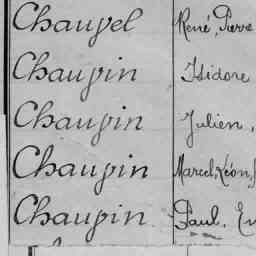 Chaupel René, Pierre
Chaupin Isidore
Chaupin Julien,
Chaupin Marcel, Léon,
Chaupin Paul,